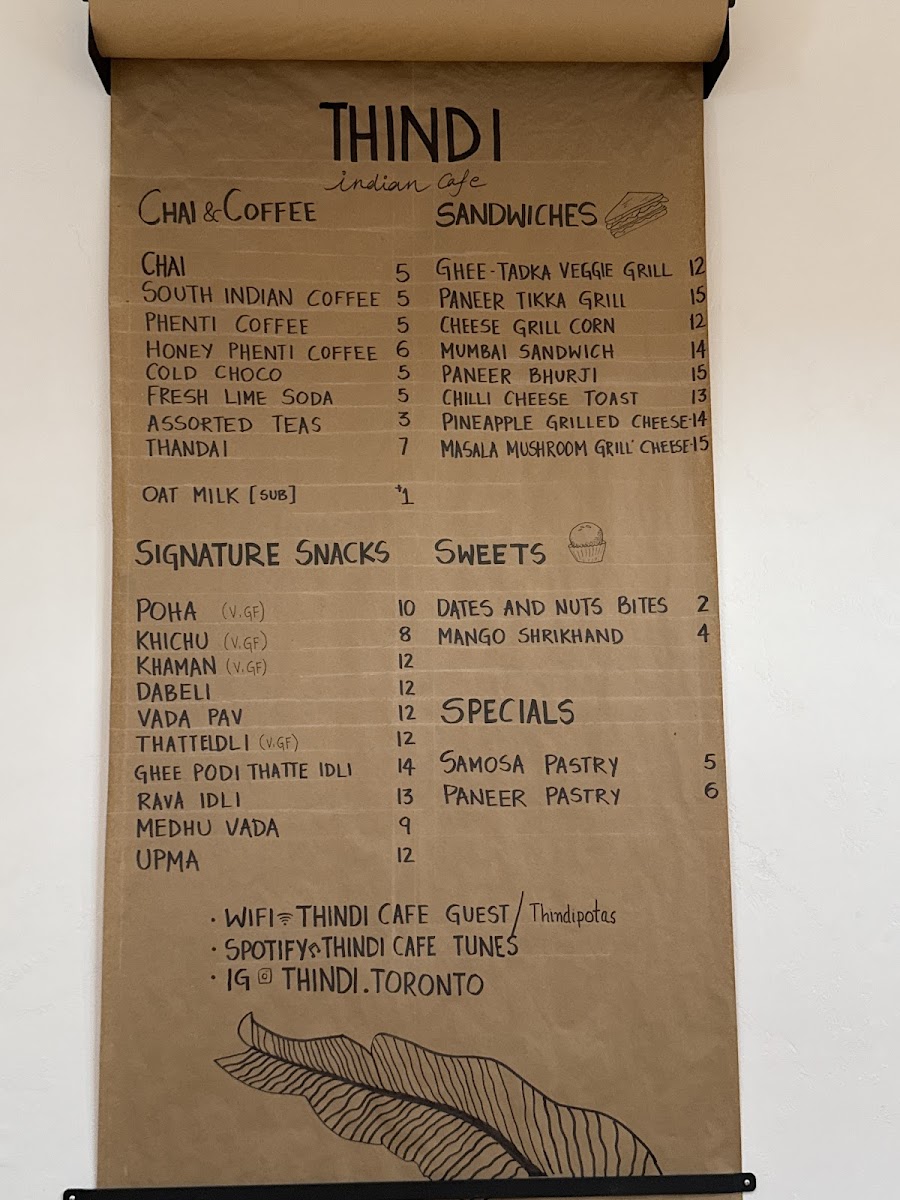 THINDI
indian Cafe
CHAI & COFFEE
CHAI 5
SOUTH INDIAN COFFEE 5
PHENTI COFFEE 5
HONEY PHENTI COFFEE 6
COLD CHOCO 5
FRESH LIME SODA 5
ASSORTED TEAS 3
THANDAI 7
OAT MILK [SUB] +1
SANDWICHES
GHEE-TADKA VEGGIE GRILL 12
PANEER TIKKA GRILL 15
CHEESE GRILL CORN 12
MUMBAI SANDWICH 14
PANEER BHURJI 15
CHILLI CHEESE TOAST 13
PINEAPPLE GRILLED CHEESE-14
MASALA MUSHROOM GRILL' CHEESE-15
SIGNATURE SNACKS
POHA (V.GF) 10
KHICHU (V.GF) 8
KHAMAN (V.GF) 12
DABELI 12
VADA PAV 12
THATTEIDLI (V.GF) 12
GHEE PODI THATTE IDLI 14
RAVA IDLI 13
MEDHU VADA 9
UPMA 12
SWEETS
DATES AND NUTS BITES 2
MANGO SHRIKHAND 4
SPECIALS
SAMOSA PASTRY 5
PANEER PASTRY 6
· WIFI THINDI CAFE GUEST / Thindipotas
· SPOTIFY THINDI CAFE TUNES
· IG THINDI.TORONTO